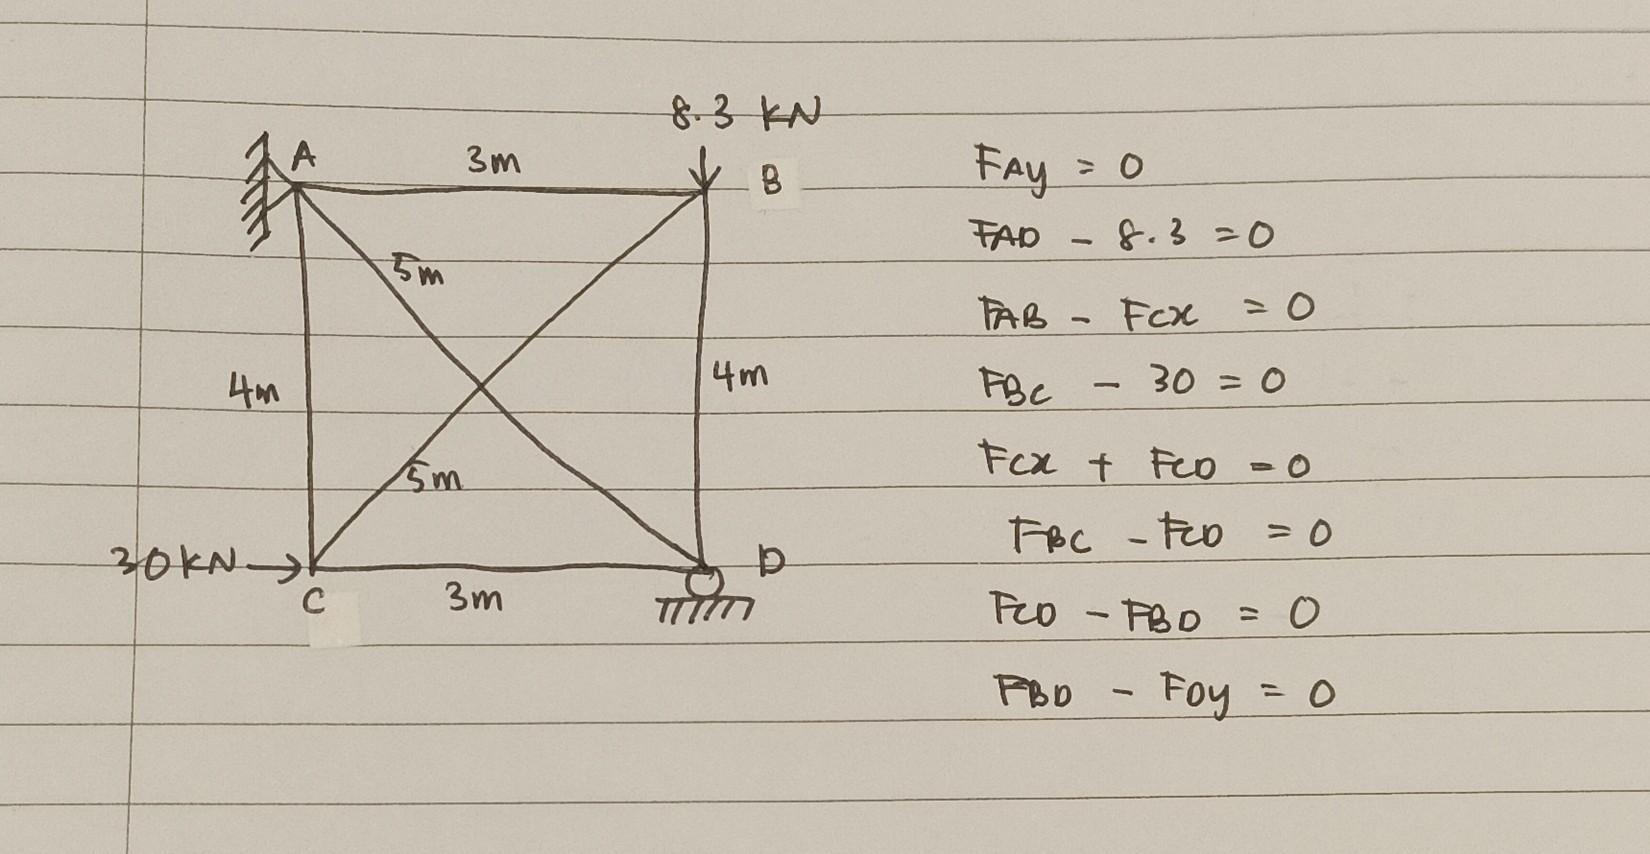 8.3 kN
A
3m
B
5m
4m
4m
5m
30kN
D
C
3m
FAy = 0
FAD - 8.3 = 0
FAB - Fcx = 0
FBC - 30 = 0
Fcx + FCD = 0
FBC - FCD = 0
FCD - FBD = 0
FBD - FDy = 0